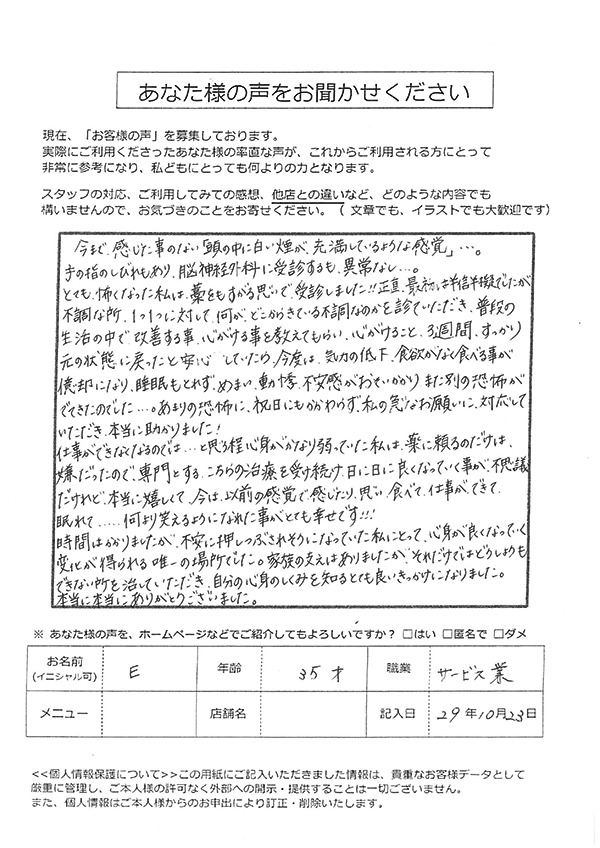 あなた様の声をお聞かせください
現在、「お客様の声」を募集しております。
実際にご利用くださったあなた様の率直な声が、これからご利用される方にとって
非常に参考になり、私どもにとっても何よりの力となります。
スタッフの対応、ご利用してみての感想、他店との違いなど、どのような内容でも
構いませんので、お気づきのことをお寄せください。（ 文章でも、イラストでも大歓迎です）
今まで、感じた事のない「頭の中に白い煙が、充満しているような感覚」…。
手の指のしびれもあり、脳神経外科に受診するも、異常なし…。
とても、怖くなった私は、藁をもすがる思いで、受診しました!!正直、最初は半信半疑でしたが
不調な所、1つ1つに対して、何が、どこからきている不調なのかを診ていただき、普段の
生活の中で、改善する事、心がける事を教えてもらい、心がけること、3週間、すっかり
元の状態に戻ったと安心していたら、今度は、気力の低下、食欲がなく食べる事が
億却になり、睡眠もとれず、めまい、動悸、不安感がおそいかかり、また別の恐怖が
でてきたのでした…。あまりの恐怖に、祝日にもかかわらず、私の急なお願いに、対応して
いただき、本当に助かりました！
仕事ができなくなるのでは…と思う程、心身がかなり弱っていた私は、薬に頼るのだけは、
嫌だったので、専門とする、こちらの治療を受け続け、日に日に良くなっていく事が、不思議
だけれど、本当に嬉しくて、今は、以前の感覚で感じたり、思い、食べて、仕事ができて、
眠れて.....何より笑えるようになれた事がとても幸せです!!!
時間はかかりましたが、不安に押しつぶされそうになっていた私にとって、心身が良くなっていく
変化が得られる唯一の場所でした。家族の支えはありましたが、それだけではどうしようも
できない所を治していただき、自分の心身のしくみを知るとても良いきっかけになりました。
本当に本当にありがとうございました。
※ あなた様の声を、ホームページなどでご紹介してもよろしいですか？ □はい □匿名で □ダメ
お名前 (イニシャル可) E 年齢 35才 職業 サービス業
メニュー 店舗名 記入日 29年10月23日
<<個人情報保護について>>この用紙にご記入いただきました情報は、貴重なお客様データとして
厳重に管理し、ご本人様の許可なく外部への開示・提供することは一切ございません。
また、個人情報はご本人様からのお申出により訂正・削除いたします。